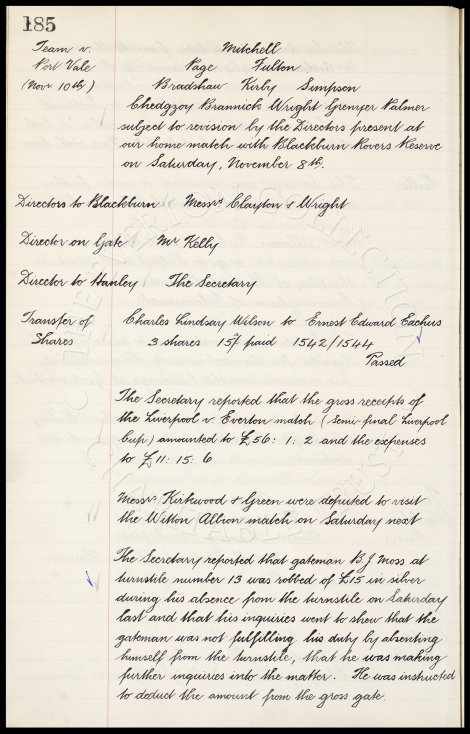 185
Team v. Mitchell
Port Vale Page Fulton
(Nov 10th) Bradshaw Kirby Simpson
Chedgzoy Brannick Wright Grenyer Palmer
subject to revision by the Directors present at
our home match with Blackburn Rovers Reserve
on Saturday, November 8th.
Directors to Blackburn Messrs Clayton & Wright
Director on Gate Mr Kelly
Director to Hanley The Secretary
Transfer of Charles Lindsay Wilson to Ernest Edward Eachus
Shares 3 shares 15/ paid 1542/1544
Passed
The Secretary reported that the gross receipts of
the Liverpool v. Everton match (semi-final Liverpool
Cup) amounted to £56: 1: 2 and the expenses
to £11: 15: 6
Messrs. Kirkwood & Green were deputed to visit
the Witton Albion match on Saturday next
The Secretary reported that gateman B.J Moss at
turnstile number 13 was robbed of £15 in silver
during his absence from the turnstile on Saturday
last and that his inquiries went to shew that the
gateman was not fulfilling his duty by absenting
himself from the turnstile, that he was making
further inquiries into the matter. He was instructed
to deduct the amount from the gross gate.